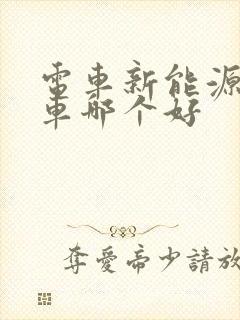 電車新能源
車那个好
奪愛帝少請放